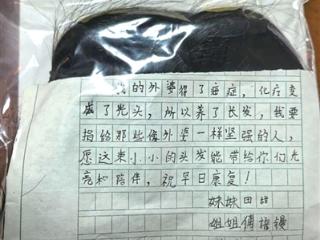 我的外婆得了癌症，化疗变
成了光头，所以养了长发，我要
捐给那些像外婆一样坚强的人，
愿这束小小的头发能带给你们光
亮和陪伴，祝早日康复！
妹妹田甜
姐姐傅语